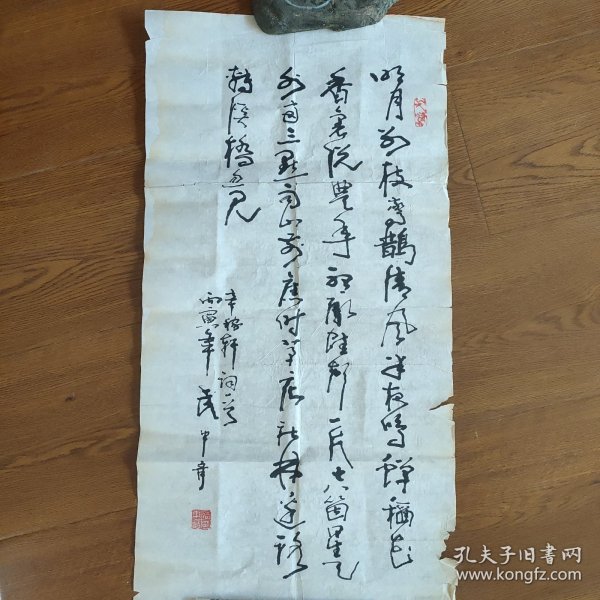 明月别枝惊鵲清风半夜鸣蝉稻花
香裏说豊年听取蛙声一片七八箇星天
外两三点雨山前旧时茅店社林边路
转溪橋忽见
辛稼轩词一首
丙寅年
孔夫子旧书网
www.kongfz.com